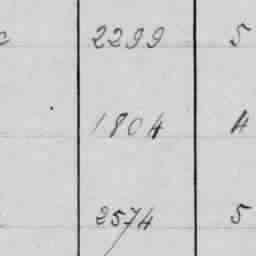 2299 5
1804 4
2574 5